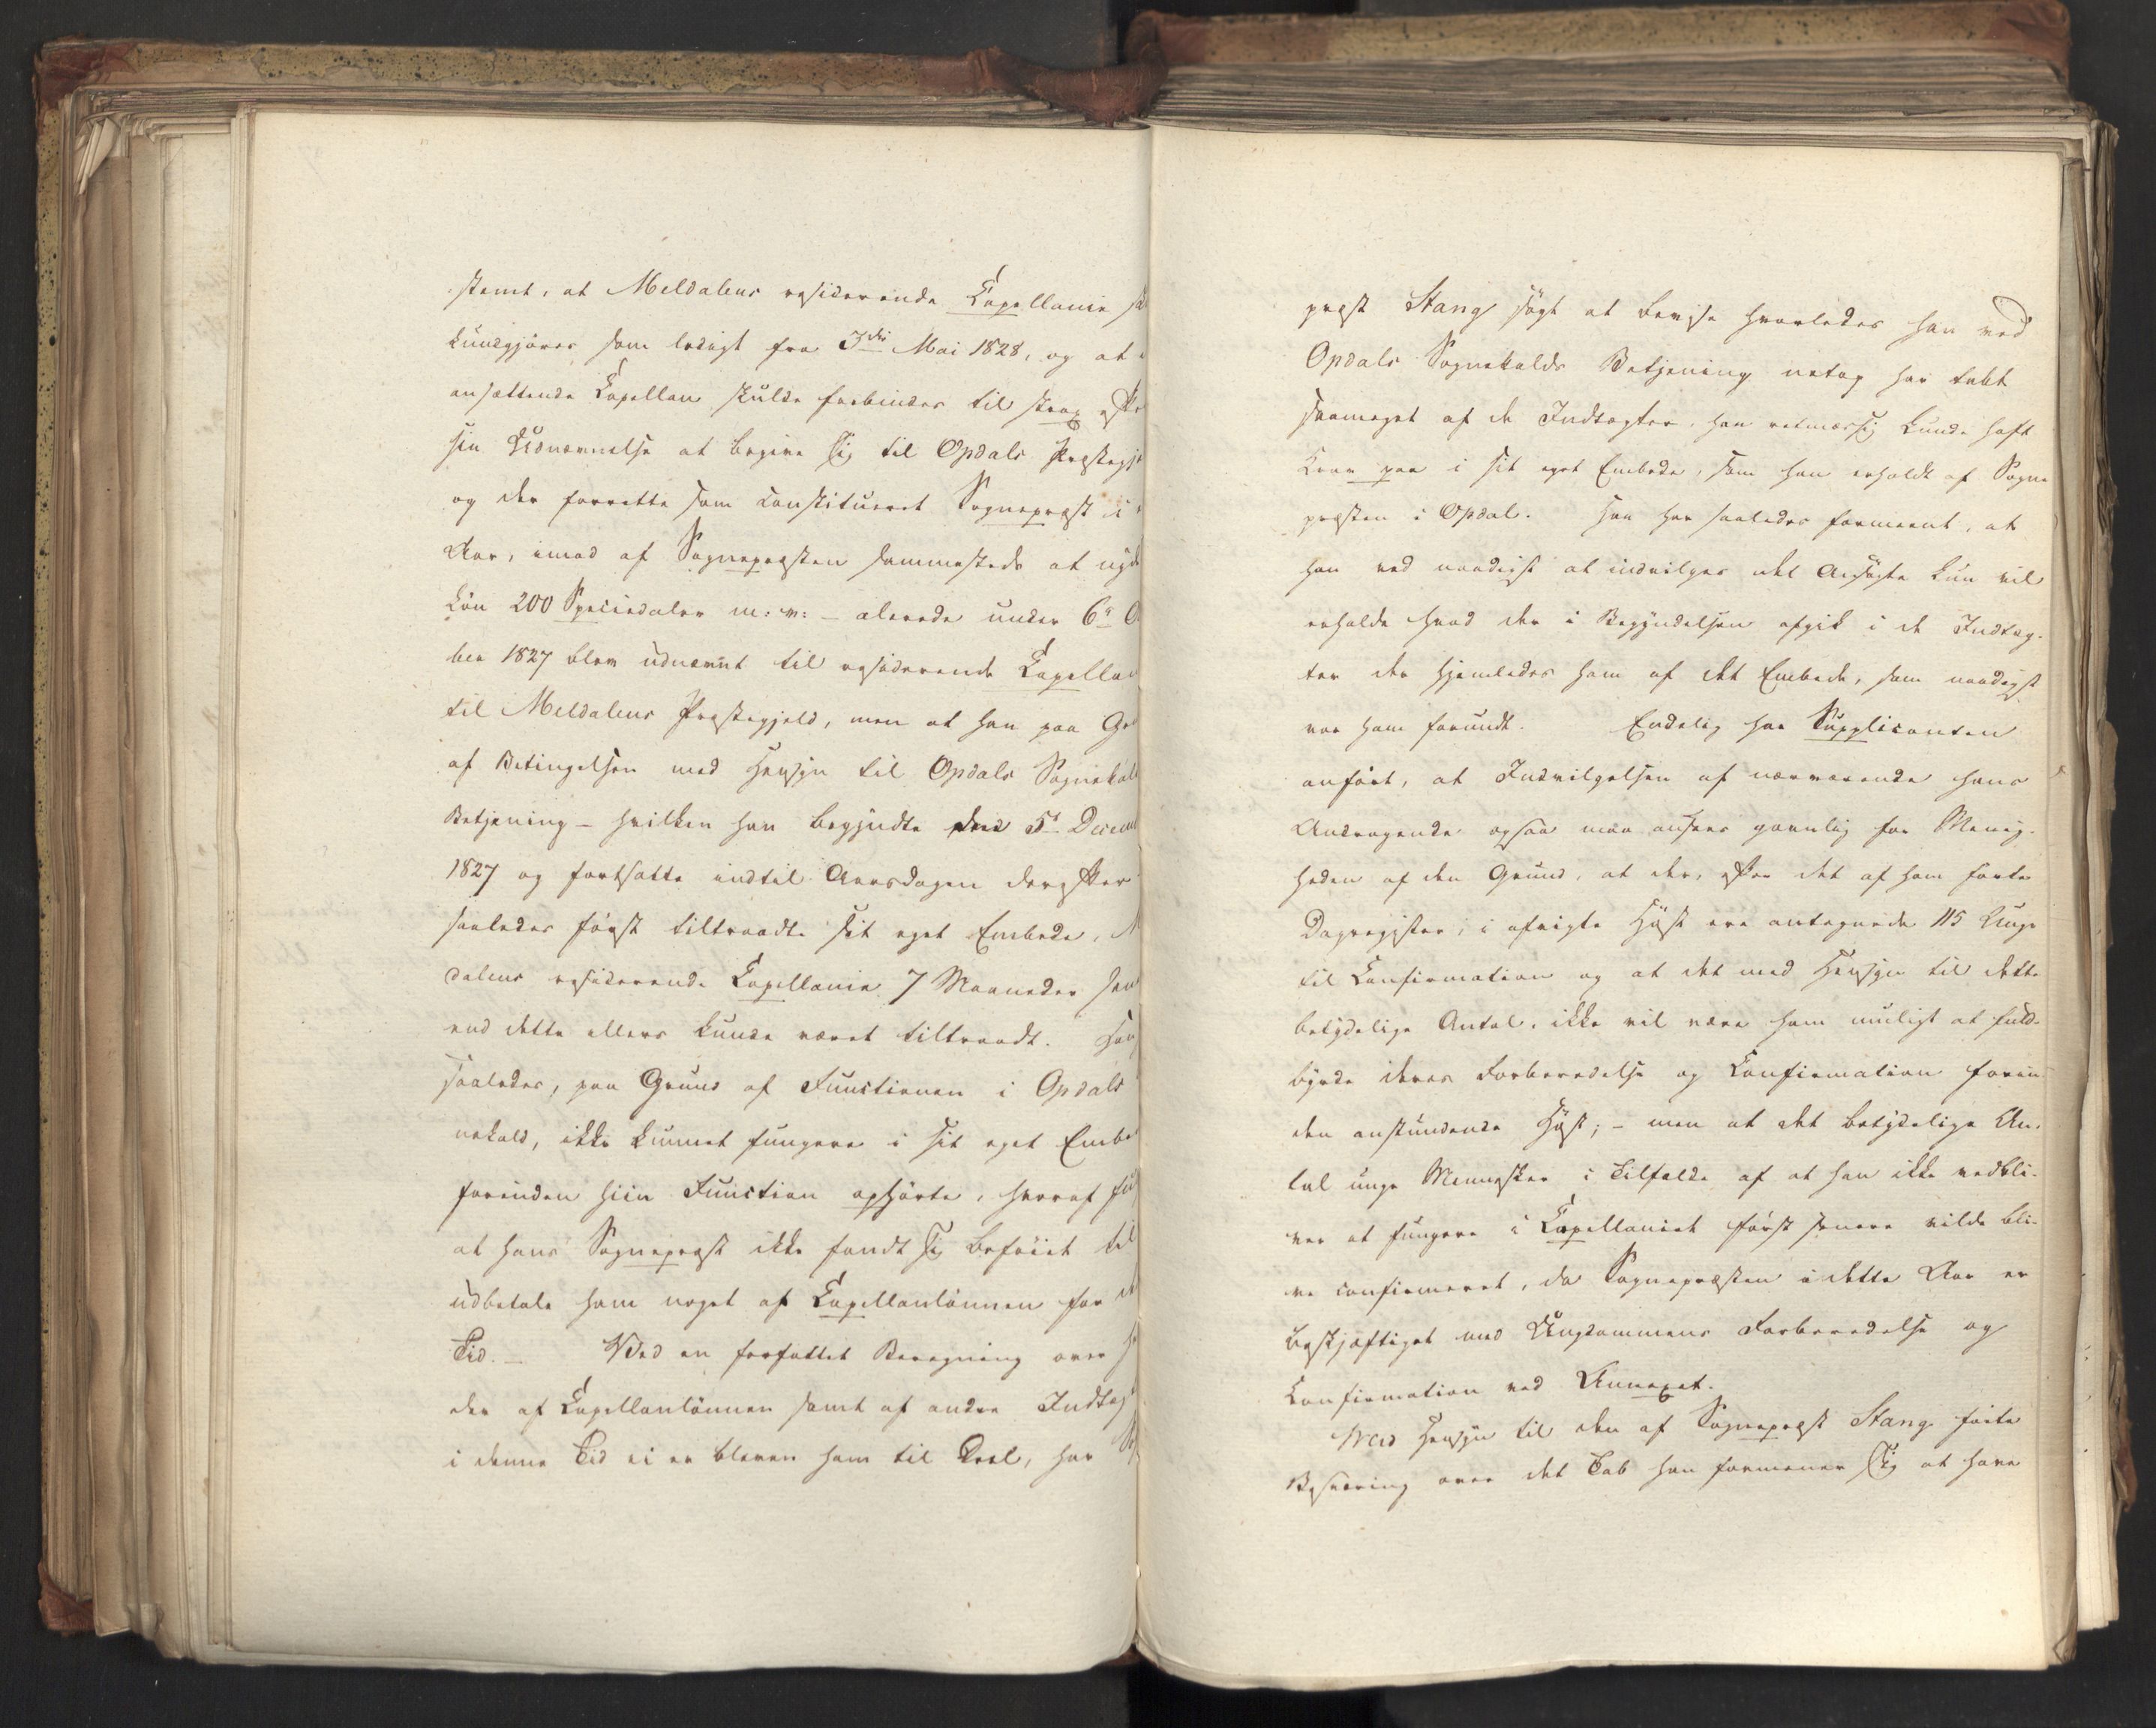 stemt, at Meldalens residerende Capellanie
kundgjöres som ledigt fra 3die Mai 1828, og at
ansættende Capellan skulde forbindes til strax efter
sin Udnævnelse at begive sig til Opdals Præstegj
og der forrette som constitueret Sognepræst i
Aar, imod af Sognepræsten sammesteds at nyde
Lön 200 Speciedaler m: v: – allerede under 6te
ber 1827 blev udnævnt til residerende Capellan
til Meldalens Præstegjeld, men at han paa
af Betingelsen med Hensyn til Opdals Sognekalds
Betjening – hvilken han begyndte den 5te Decem
1827 og fortsatte indtil Aarsdagen derefter
saaledes först tiltraadte sit eget Embede,
dalens residerende Capellanie 7 Maaneder
end dette ellers kunde været tiltraadt. Han
saaledes, paa Grund af Functionen i Opdals
nekald, ikke kunnet fungere i sit eget Embe
forinden hiin Function ophörte, hvoraf
at hans Sognepræst ikke fandt sig beföiet til
udbetale ham noget af Capellanlönnen for
Tid. – Ved en forfattet Beregning over
der af Capellanlönnen samt af andre Indtæg
i denne Tid ei er bleven ham til Deel, har
præst Stang sögt at bevise hvorledes han ved
Opdals Sognekalds Betjening netop har tabt
saameget af de Indtægter, han retmæssig kunde haft
Krav paa i sit eget Embede, som han erholdt af Sogne
præsten i Opdal. Han har saaledes formeent, at
han ved naadigst at indvilges det Ansögte kun vil
erholde hvad der i Begyndelsen afgik i de Indtæg-
ter der hjemledes ham af det Embede, som naadigst
var ham forundt. Endelig har Supplicanten
anfört, at Indvilgelsen af nærværende hans
Andragende ogsaa maa ansees gavnlig for Menig-
heden af den Grund, at der, efter det af ham förte
Dagregister, i afvigte Höst ere antegnede 115 Unge
til Confirmation og at det med Hensyn til dette
betydelige Antal, ikke vil være ham muligt at fuld-
byrde deres Forberedelse og Confirmation forin-
den anstundende Höst; – men at det betydelige An-
tal unge Mennesker i Tilfælde af at han ikke vedbli-
ver at fungere i Capellaniet först senere vilde bli-
ve confirmeret, da Sognepræsten i dette Aar er
beskjæftiget med Ungdommens Forberedelse og
Confirmation ved Annexet.
Med Hensyn til den af Sognepræst Stang förte
Besværing over det Tab han formener sig at have